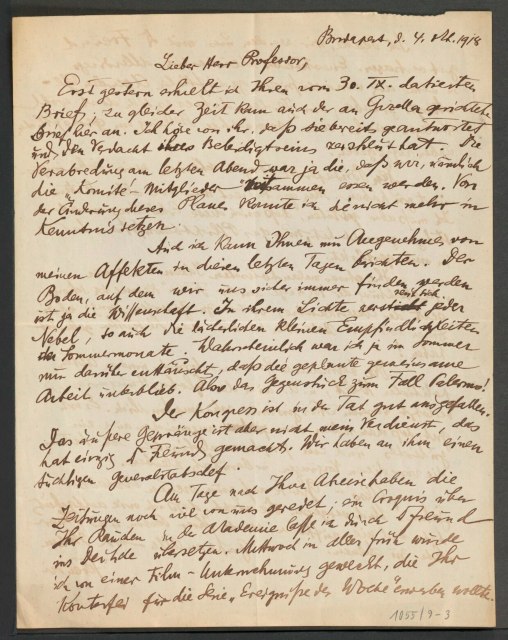 Budapest, d. 4. Okt. 1918
Lieber Herr Professor,
Erst gestern erhielt ich Ihren vom 30. IX. datierten
Brief, zu gleicher Zeit kam auch der an Gizella gerichtete
Brief hier an. Ich höre von ihr, daß sie bereits geantwortet
und den Verdacht ihres Beleidigtseins zerstreut hat. Die
Verabredung am letzten Abend war ja die, daß wir, nämlich
die „Komité-Mitglieder" zusammen essen werden. Von
der Änderung dieses Planes konnte ich sie nicht mehr in
Kenntnis setzen.
Auch ich kann Ihnen nur Angenehmes von
meinen Affekten in diesen letzten Tagen berichten. Der
Boden, auf dem wir uns sicher immer finden werden
ist ja die Wissenschaft. In ihrem Lichte zerstreut sich jeder
Nebel, so auch die lächerlichen kleinen Empfindlichkeiten
der Sommermonate. Wahrscheinlich war ich ja im Sommer
nur darüber enttäuscht, daß die geplante gemeinsame
Arbeit unterblieb. Also das Gegenstück zum Fall Palermo!
Der Kongress ist in der Tat gut ausgefallen.
Das äußere Gepränge ist aber nicht mein Verdienst, das
hat einzig Freund gemacht. Wir haben an ihm einen
tüchtigen Generalstabschef.
Am Tage nach Ihrer Abreise haben die
Zeitungen noch viel von uns geredet, ein Croquis über
Ihr in der Akademie lasse ich durch Freund
ins Deutsche übersetzen. Mittwoch in aller früh wurde
ich von einer Film-Unternehmung geweckt, die Ihr
Konterfei für die Serie „Ereignisse der Woche" erwerben wollte.
1055/9-3